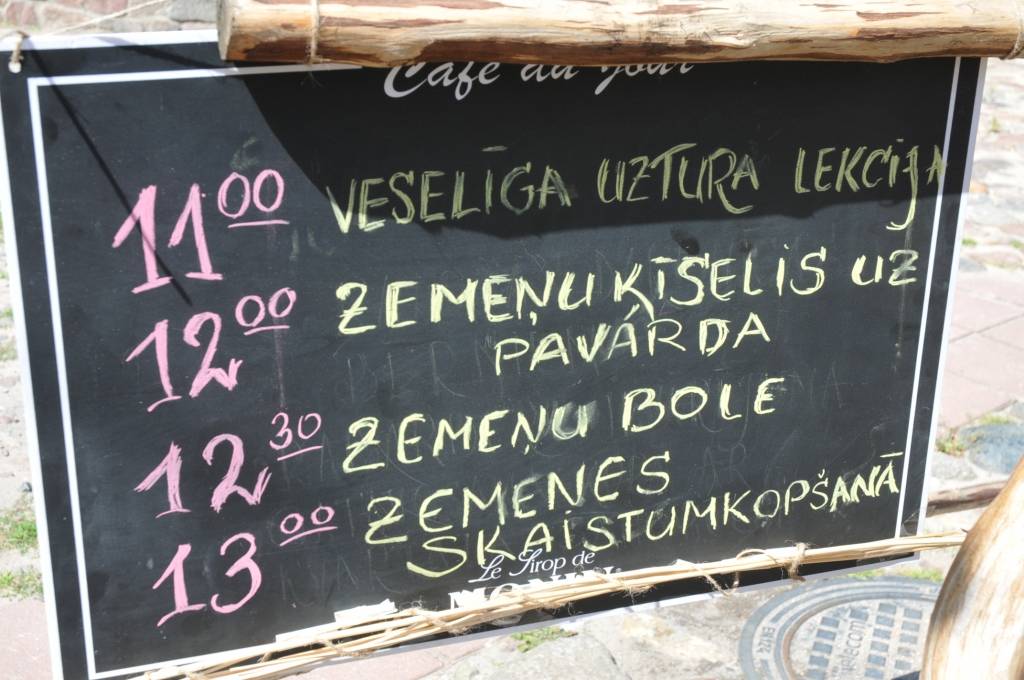 Café au jour
11⁰⁰ VESELĪGA UZTURA LEKCIJA
12⁰⁰ ZEMEŅU ĶĪSELIS UZ
PAVĀRDA
12³⁰ ZEMEŅU BOLE
13⁰⁰ ZEMENES
SKAISTUMKOPŠANĀ
Le Sirop de
MONIN®
telecom